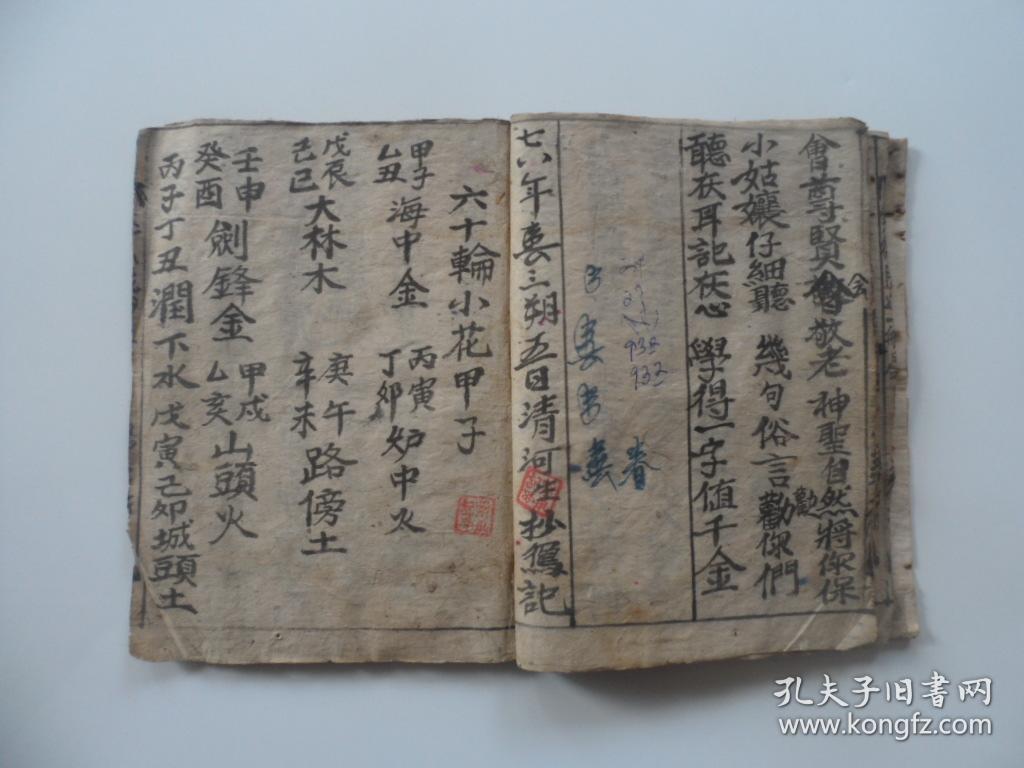 會尊賢會敬老神聖自然將你保
会
小姑孃仔細聽 幾句俗言勸你們
勸
聽在耳記在心 學得一字值千金
932
932
春
七八年春三朔五日清河生抄寫記
六十輪小花甲子
甲子乙丑海中金 丙寅丁卯炉中火
戊辰己巳大林木 庚午辛未路傍土
壬申癸酉劍鋒金 甲戌乙亥山頭火
丙子丁丑潤下水 戊寅己卯城頭土
孔夫子旧书网
www.kongfz.com